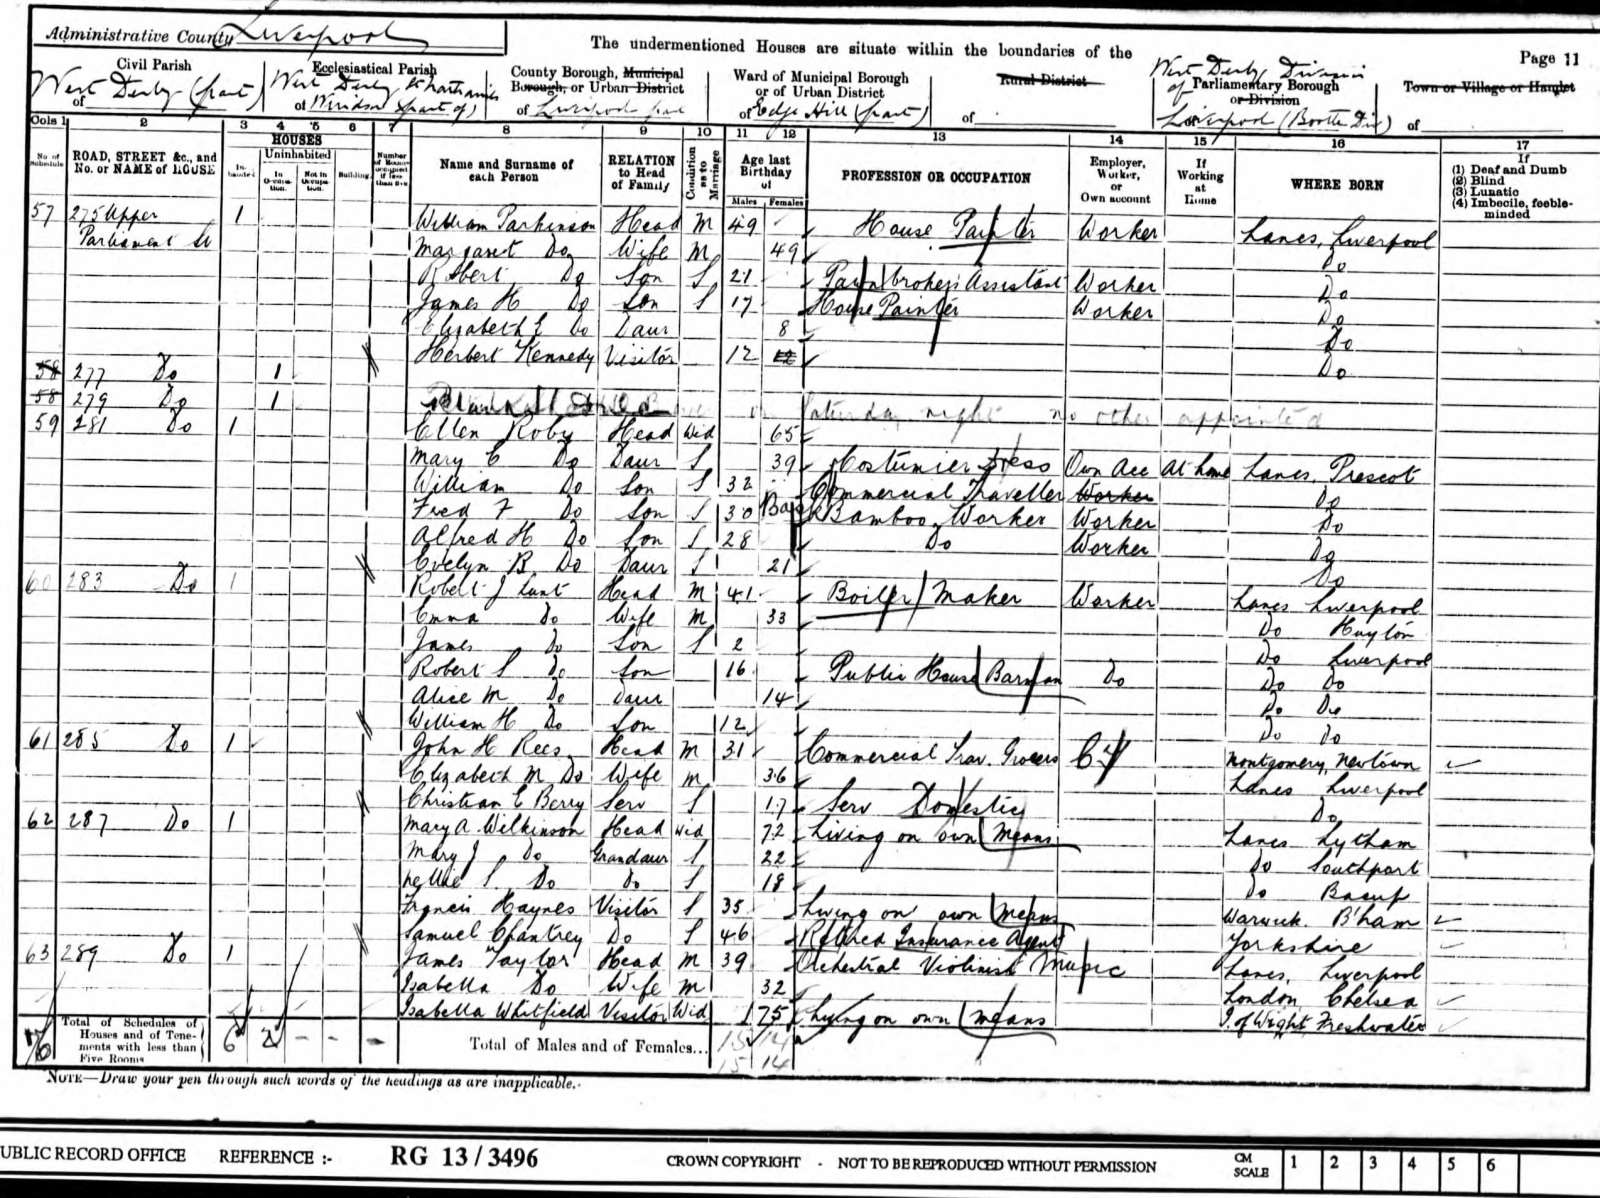 Administrative County Liverpool
The undermentioned Houses are situate within the boundaries of the
Page 11
Civil Parish
of West Derby (part)
Ecclesiastical Parish
of West Derby St Nathaniel Windsor (part of)
County Borough, Municipal Borough, or Urban District
of Liverpool part
Ward of Municipal Borough or of Urban District
of Edge Hill (part)
Rural District
of
Parliamentary Borough or Division
of West Derby Division Liverpool (Bootle Div)
Town or Village or Hamlet
of
Cols 1 2 3 4 5 6 7 8 9 10 11 12 13 14 15 16 17
No. of Schedule
ROAD, STREET &c., and No. or NAME of HOUSE
HOUSES
Inhabited
Uninhabited
In Occupation.
Not in Occupation.
Building.
Number of Rooms occupied if less than five
Name and Surname of each Person
RELATION to Head of Family
Condition as to Marriage
Age last Birthday of
Males Females
PROFESSION OR OCCUPATION
Employer, Worker, or Own account
If Working at Home
WHERE BORN
If
(1) Deaf and Dumb
(2) Blind
(3) Lunatic
(4) Imbecile, feeble-minded
57 275 Upper Parliament St 1 William Parkinson Head M 49 House Painter Worker Lancs, Liverpool
Margaret Do Wife M 49 Do
Robert Do Son S 21 Pawnbroker's Assistant Worker Do
James H Do Son S 17 House Painter Worker Do
Elizabeth E Do Daur 8 Do
Herbert Kennedy Visitor 12 Do
58 277 Do 1
58 279 Do 1 Saturday night no other appointed
59 281 Do 1 Ellen Roby Head Wid 65
Mary E Do Daur S 39 Costumier Dress Own Acc At home Lancs, Prescot
William Do Son S 32 Commercial Traveller Worker Do
Fred F Do Son S 30 Bamboo Worker Worker Do
Alfred H Do Son S 28 Do Worker Do
Evelyn B Do Daur S 21 Do
60 283 Do 1 Robert J Lunt Head M 41 Boiler Maker Worker Lancs Liverpool
Emma Do Wife M 33 Do Huyton
James Do Son S 2 Do Liverpool
Robert S Do Son 16 Public House Barman Do Do Do
Alice M Do Daur 14 Do Do
William H Do Son 12 Do Do
61 285 Do 1 John H Rees Head M 31 Commercial Trav. Grocers Montgomery, Newtown
Elizabeth M Do Wife M 36 Lancs Liverpool
Christian E Berry Serv S 17 Serv Domestic Do
62 287 Do 1 Mary A. Wilkinson Head Wid 72 Living on own Means Lancs Lytham
Mary J Do Grandaur S 22 Do Southport
Nellie S. Do Do S 18 Do Bacup
Francis Haynes Visitor S 35 Living on own means Warwick. B'ham
Samuel Chantrey Do S 46 Retired Insurance Agent Yorkshire
63 289 Do 1 James Taylor Head M 39 Orchestral Violinist Music Lancs, Liverpool
Isabella Do Wife M 32 London Chelsea
Isabella Whitfield Visitor Wid 75 Living on own means I. of Wight, Freshwater
Total of Schedules of Houses and of Tenements with less than Five Rooms 6 2 - - -
Total of Males and of Females... 15 14
15 14
NOTE—Draw your pen through such words of the headings as are inapplicable.
PUBLIC RECORD OFFICE REFERENCE :- RG 13 / 3496 CROWN COPYRIGHT - NOT TO BE REPRODUCED WITHOUT PERMISSION CM SCALE 1 2 3 4 5 6